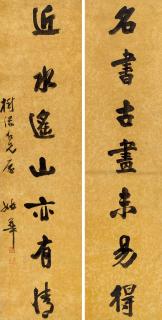 名書古畫未易得
近水遙山亦有情
姚華